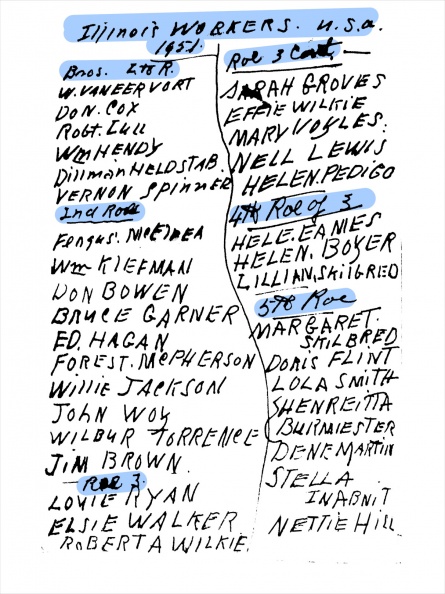 Illinois WORKERS. U.S.A.
1951.
Bros. L to R.
W. VANEERVORT
DON. COX
Robt. Lull
Wm HENDY
Dillman HELDSTAB.
VERNON Spinner
2nd Roe
Fengus. McElnea
Wm KlEFMAN
DON BOWEN
BRUCE GARNER
ED. HAGAN
FOREST. McPHERSON
Willie JACKSON
JOHN WOY
WILBUR TORRENCE
JIM BROWN.
Roe 3.
LOUIE RYAN
ELSIE WALKER
ROBERTA WILKIE.
Roe 3 Cont. —
SARAH GROVES
EFFIE WILKIE
MARY VOYLES.
NELL LEWIS
HELEN. PEDIGO
4th Roe of 3
HELE. EAMES
HELEN. BOYER
LILLIAN. SKilGRED
5th Roe
MARGARET.
SKILBRED
DORIS FLINT
LOLA SMITH
SHENREITTA
BURMIESTER
DENE MARTIN
STELLA
INABNIT
NETTIE Hill